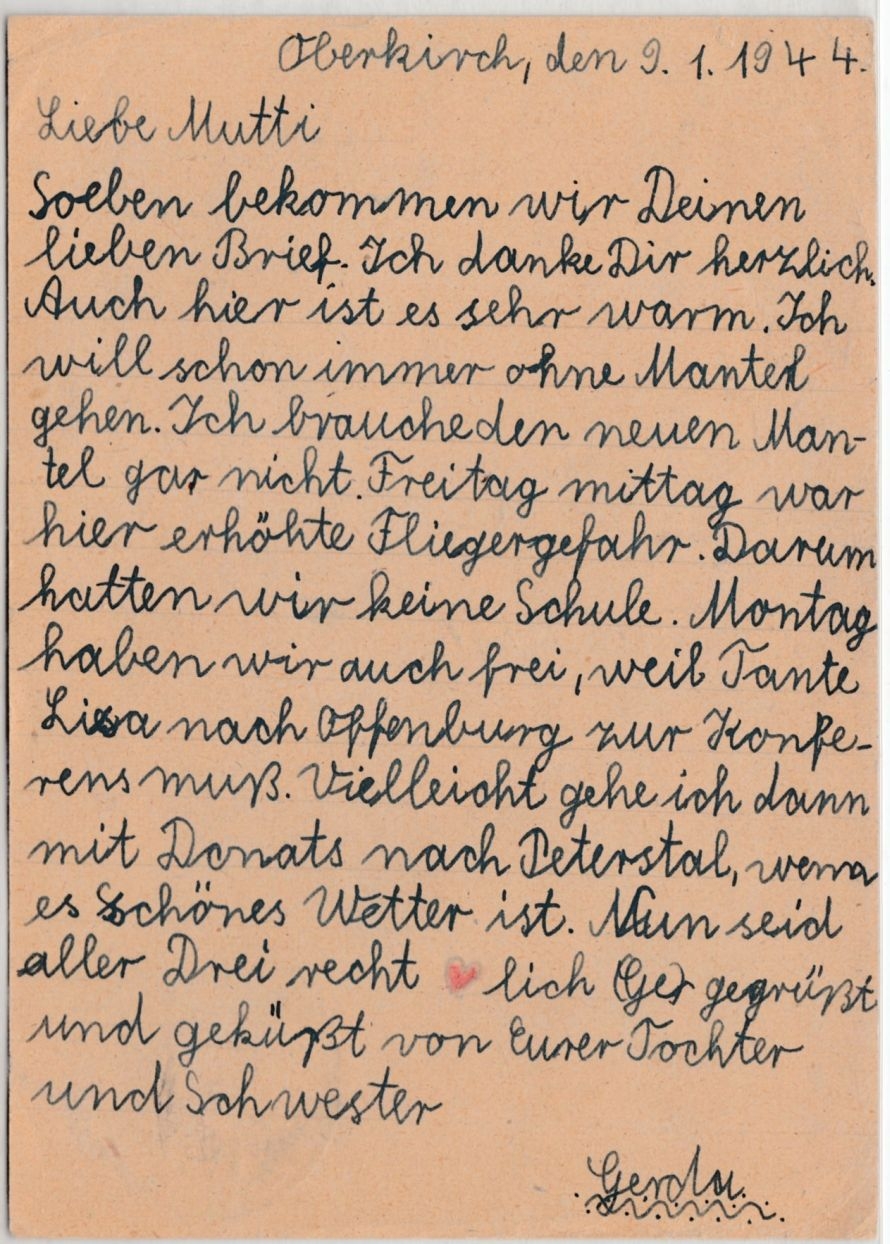 Oberkirch, den 9. 1. 1944.
Liebe Mutti
Soeben bekommen wir Deinen
lieben Brief. Ich danke Dir herzlich.
Auch hier ist es sehr warm. Ich
will schon immer ohne Mantel
gehen. Ich brauche den neuen Man-
tel gar nicht. Freitag mittag war
hier erhöhte Fliegergefahr. Darum
hatten wir keine Schule. Montag
haben wir auch frei, weil Tante
Lisa nach Offenburg zur Konfe-
rens muß. Vielleicht gehe ich dann
mit Donats nach Peterstal, wenn
es schönes Wetter ist. Nun seid
aller Drei recht ❤ lich (Ge) gegrüßt
und geküßt von Eurer Tochter
und Schwester
Gerda.